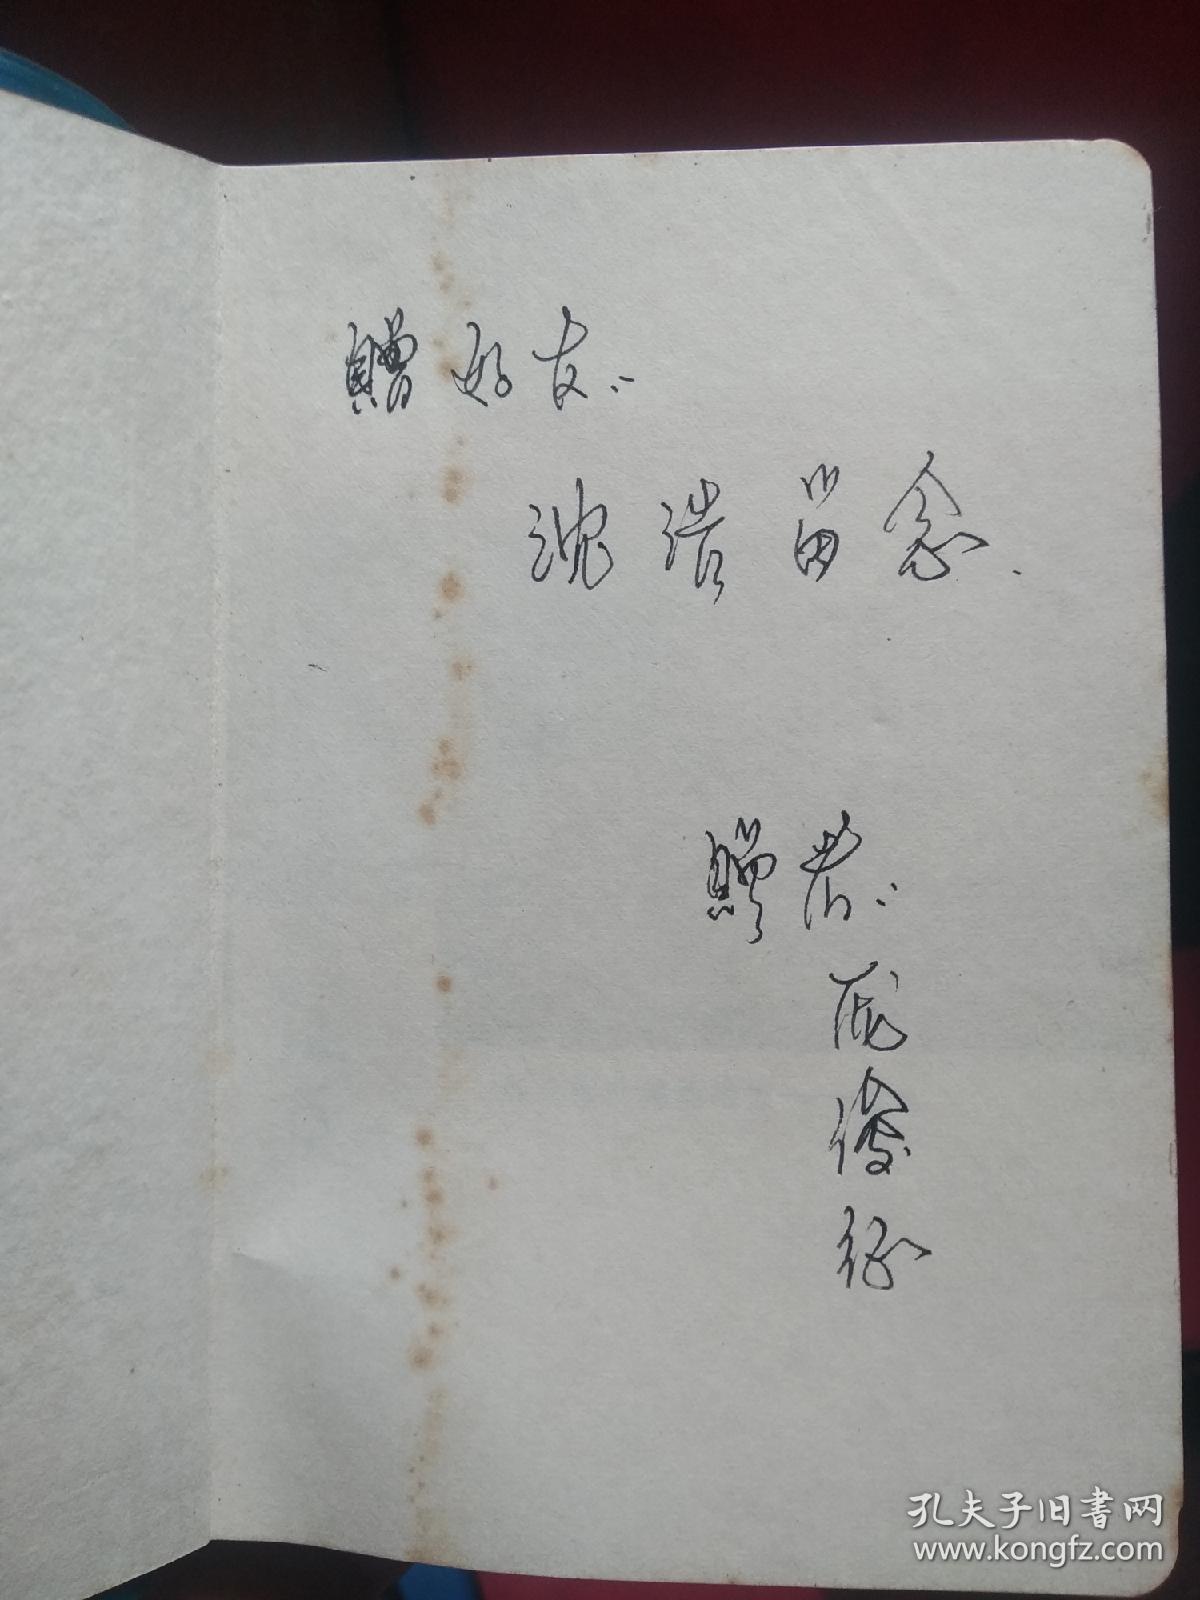 赠好友:
沈浩留念.
赠者:
俊
征
孔夫子旧书网
www.kongfz.com